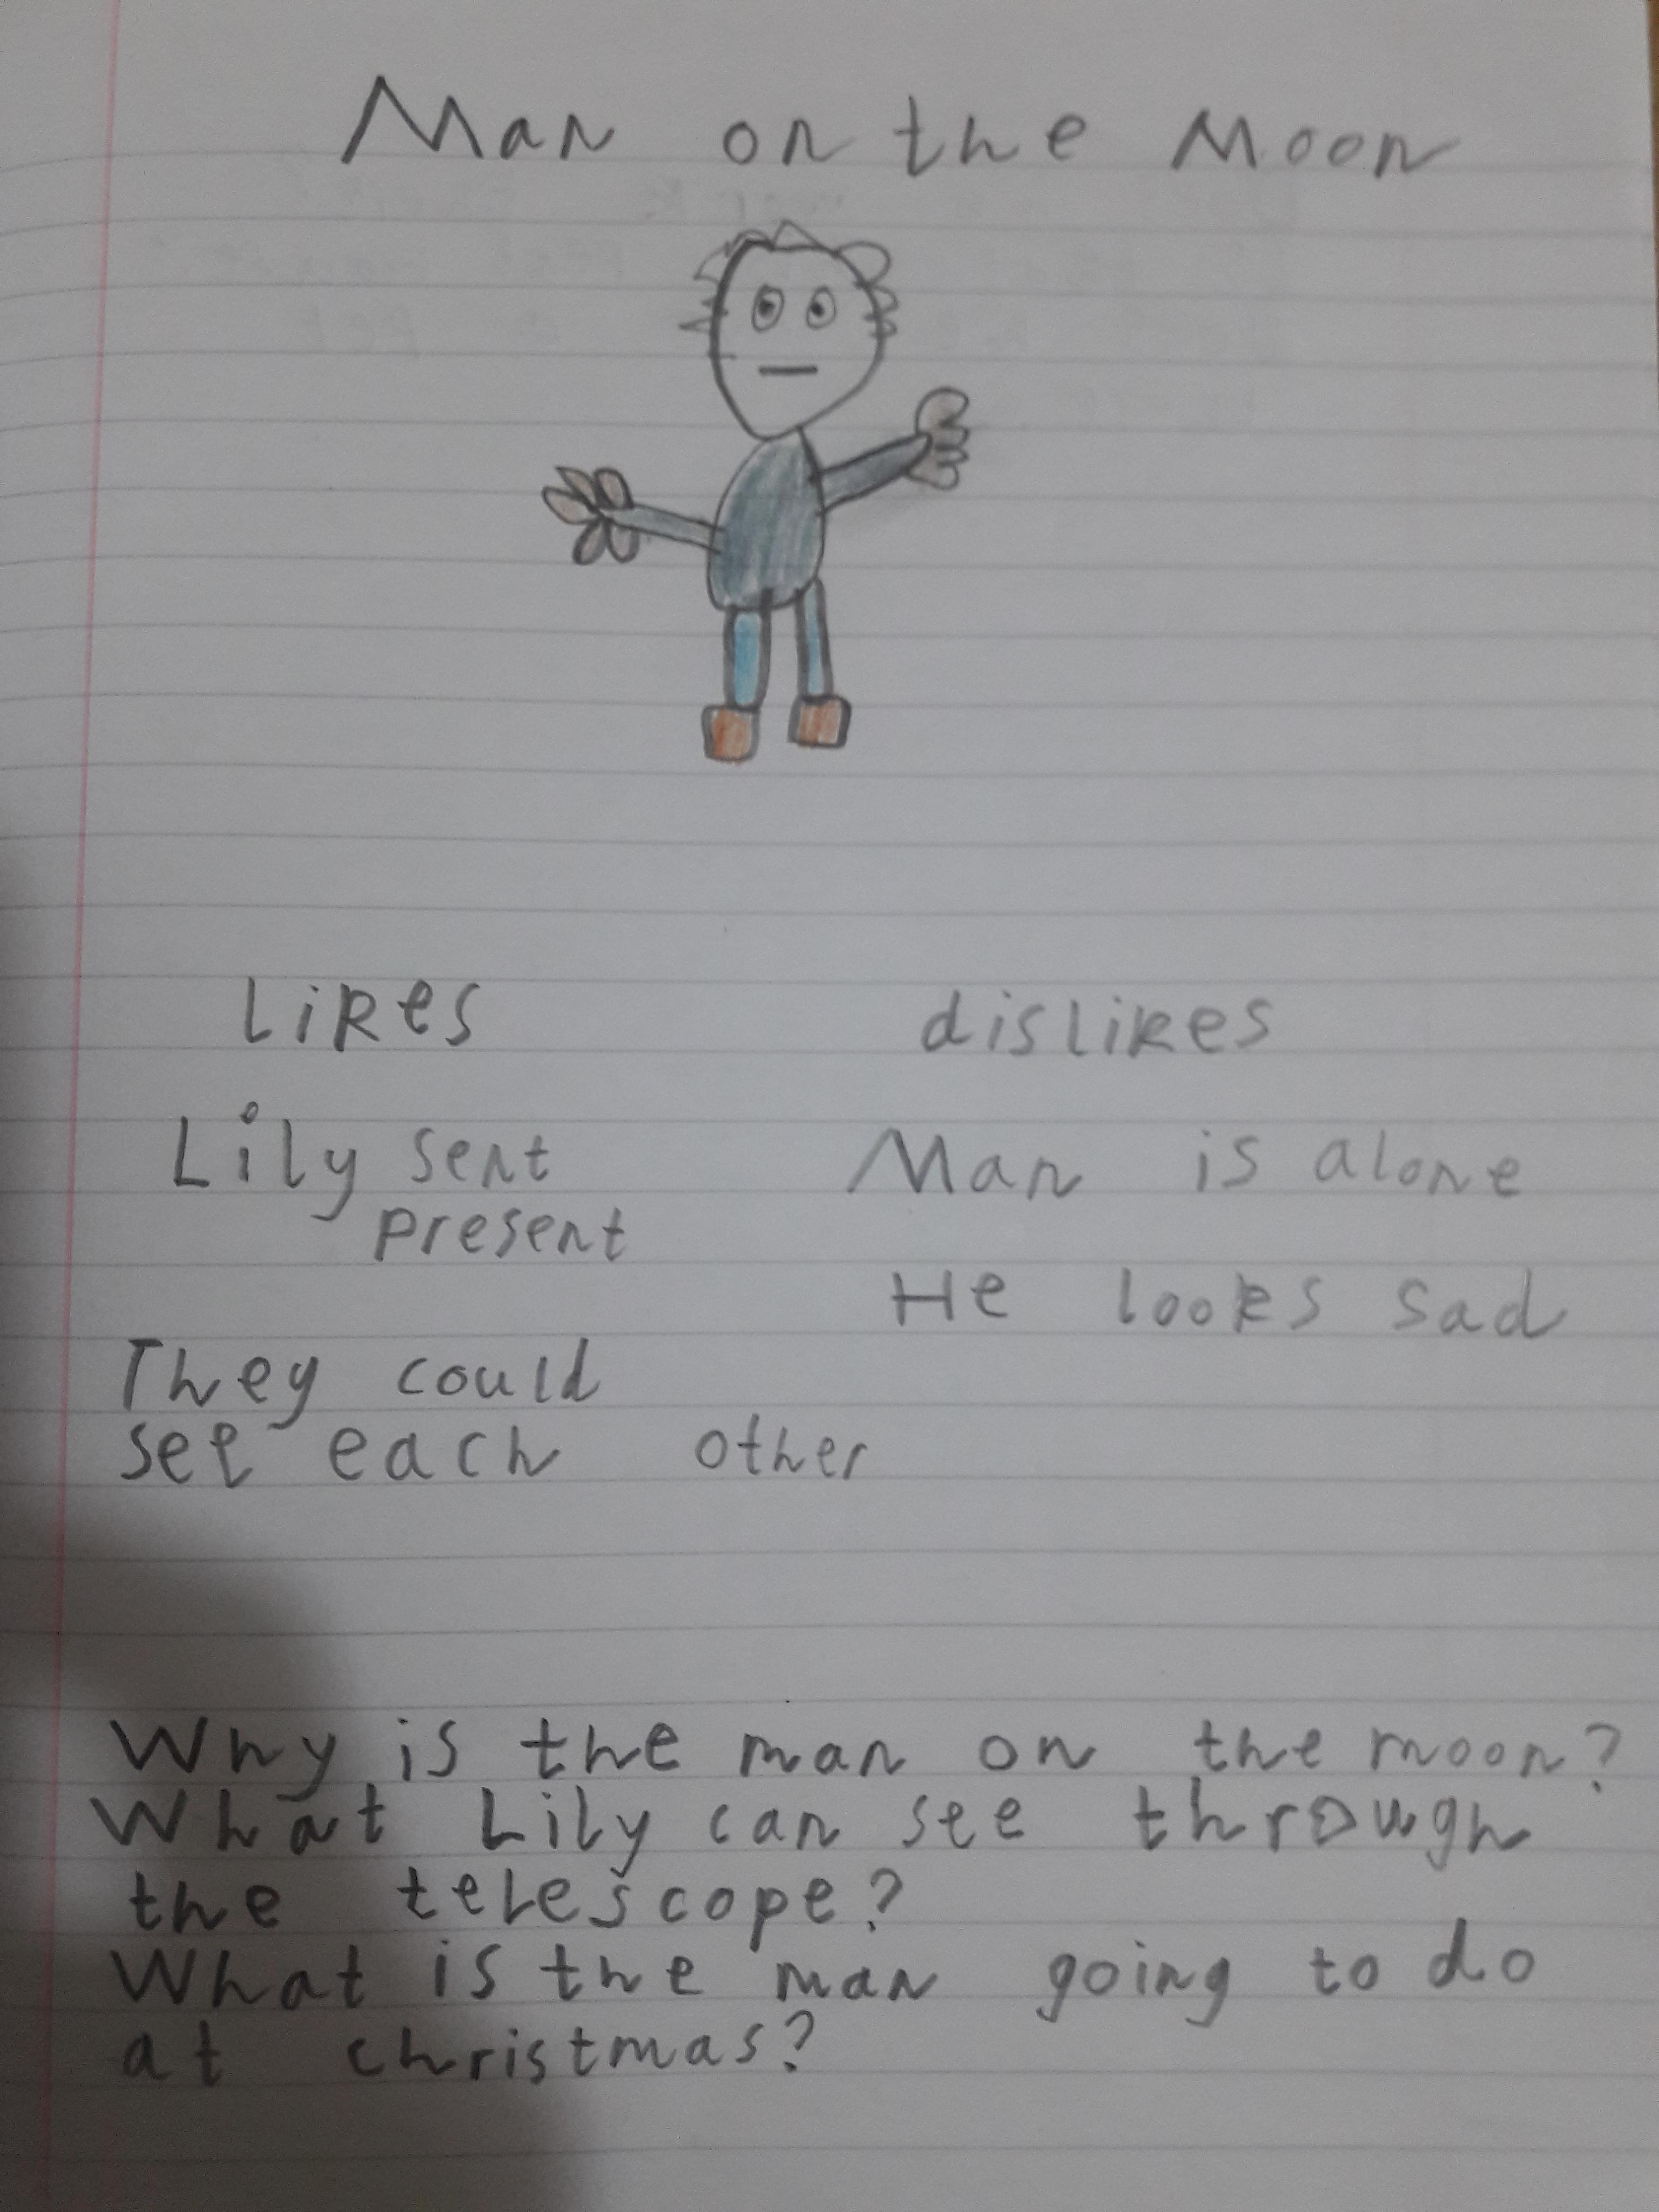 Man on the Moon
Likes
dislikes
Lily sent
present
Man is alone
He looks sad
They could
see each other
Why is the man on the moon?
What Lily can see through
the telescope?
What is the man going to do
at christmas?